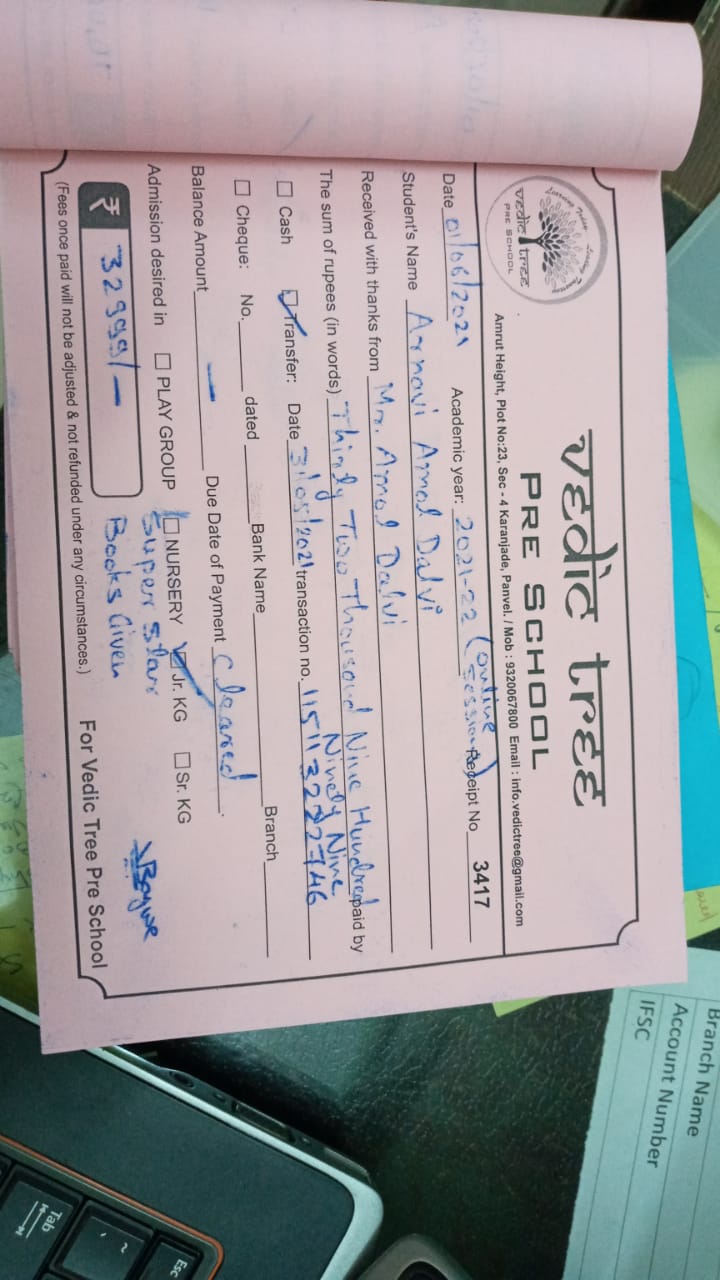 vedic tree
PRE SCHOOL
Learning Tender Loving
vedic tree
PRE SCHOOL
Amrut Height, Plot No:23, Sec - 4 Karanjade, Panvel. / Mob : 9320067800 Email : info.vedictree@gmail.com
Date 01/06/2021 Academic year: 2021-22 (online session) Receipt No 3417
Student's Name Arnavi Amol Dalvi
Received with thanks from Mr. Amol Dalvi
The sum of rupees (in words) Thirty Two Thousand Nine Hundred Ninety Nine paid by
Cash Transfer: Date 31/05/2021 transaction no. 115113222746
Cheque: No. dated Bank Name Branch
Balance Amount — Due Date of Payment Cleared.
Admission desired in PLAY GROUP NURSERY Jr. KG Sr. KG
Super Star
₹ 32999/- Books Given
For Vedic Tree Pre School
(Fees once paid will not be adjusted & not refunded under any circumstances.)
Branch Name
Account Number
IFSC
Tab
Esc